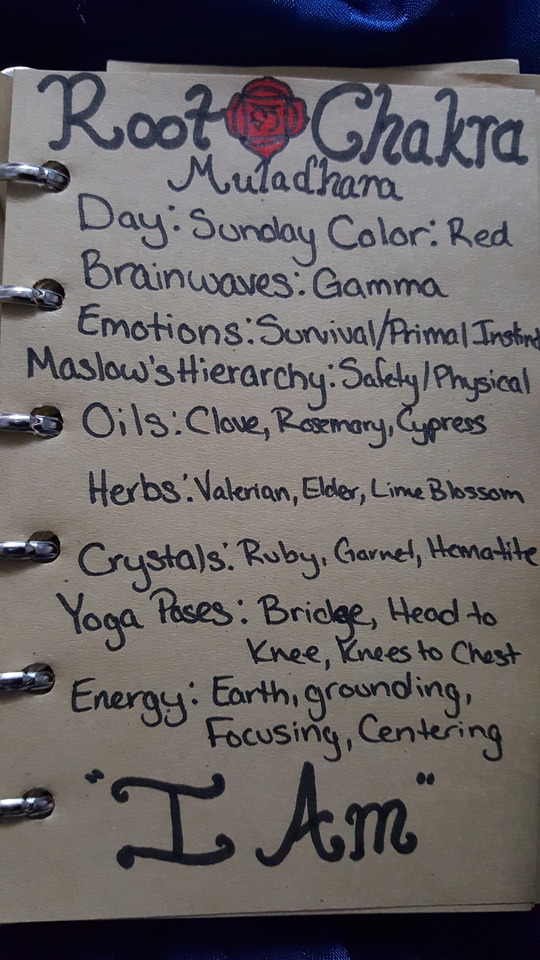 Root Chakra
Muladhara
Day: Sunday Color: Red
Brainwaves: Gamma
Emotions: Survival/Primal Instinct
Maslow's Hierarchy: Safety/Physical
Oils: Clove, Rosemary, Cypress
Herbs: Valerian, Elder, Lime Blossom
Crystals: Ruby, Garnet, Hematite
Yoga Poses: Bridge, Head to
Knee, Knees to Chest
Energy: Earth, grounding,
Focusing, Centering
"I Am"